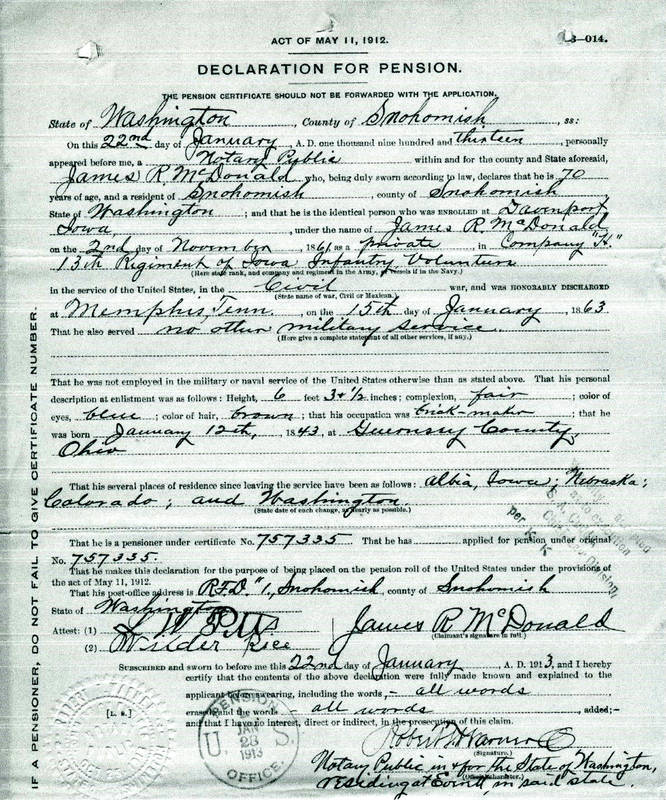 ACT OF MAY 11, 1912.
3—014.
DECLARATION FOR PENSION.
THE PENSION CERTIFICATE SHOULD NOT BE FORWARDED WITH THE APPLICATION.
State of Washington, County of Snohomish, ss:
On this 22nd day of January, A. D. one thousand nine hundred and thirteen, personally
appeared before me, a Notary Public within and for the county and State aforesaid,
James R. McDonald who, being duly sworn according to law, declares that he is 70
years of age, and a resident of Snohomish county of Snohomish
State of Washington; and that he is the identical person who was ENROLLED at Davenport
Iowa, under the name of James R. McDonald
on the 2nd day of November 1861, as a private in Company "H."
13th Regiment of Iowa Infantry Volunteers
(Here state rank, and company and regiment in the Army, or vessels if in the Navy.)
in the service of the United States, in the Civil war, and was HONORABLY DISCHARGED
(State name of war, Civil or Mexican.)
at Memphis, Tenn. on the 15th day of January, 1863
That he also served no other military service.
(Here give a complete statement of all other services, if any.)
That he was not employed in the military or naval service of the United States otherwise than as stated above. That his personal
description at enlistment was as follows: Height, 6 feet 3 + 1/2 inches; complexion, fair; color of
eyes, blue; color of hair, brown; that his occupation was brick-maker; that he
was born January 12th, 1843, at Guernsey County,
Ohio
That his several places of residence since leaving the service have been as follows: Albia, Iowa; Nebraska;
Colorado; and Washington.
(State date of each change, as nearly as possible.)
That he is a pensioner under certificate No. 757335. That he has applied for pension under original
No. 757335.
That he makes this declaration for the purpose of being placed on the pension roll of the United States under the provisions of
the act of May 11, 1912.
That his post-office address is R.F.D. #1, Snohomish, county of Snohomish
State of Washington
Attest: (1) L W Pitts
James R. McDonald
(2) Wilder Rice
(Claimant's signature in full.)
SUBSCRIBED and sworn to before me this 22nd day of January, A. D. 1913, and I hereby
certify that the contents of the above declaration were fully made known and explained to the
applicant before swearing, including the words, - all words
erased, and the words - all words added;—
and that I have no interest, direct or indirect, in the prosecution of this claim.
[L. S.]
(Signature.)
Notary Public in & for the State of Washington,
residing at Everett, in said state.
(Official character.)
PENSION
JAN
23
1913
U. S.
OFFICE.
per K. K
IF A PENSIONER, DO NOT FAIL TO GIVE CERTIFICATE NUMBER.